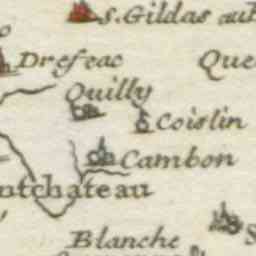 S. Gildas au
Drefeac
Que
Quilly
Coislin
Cambon
ntchateau
Blanche
S